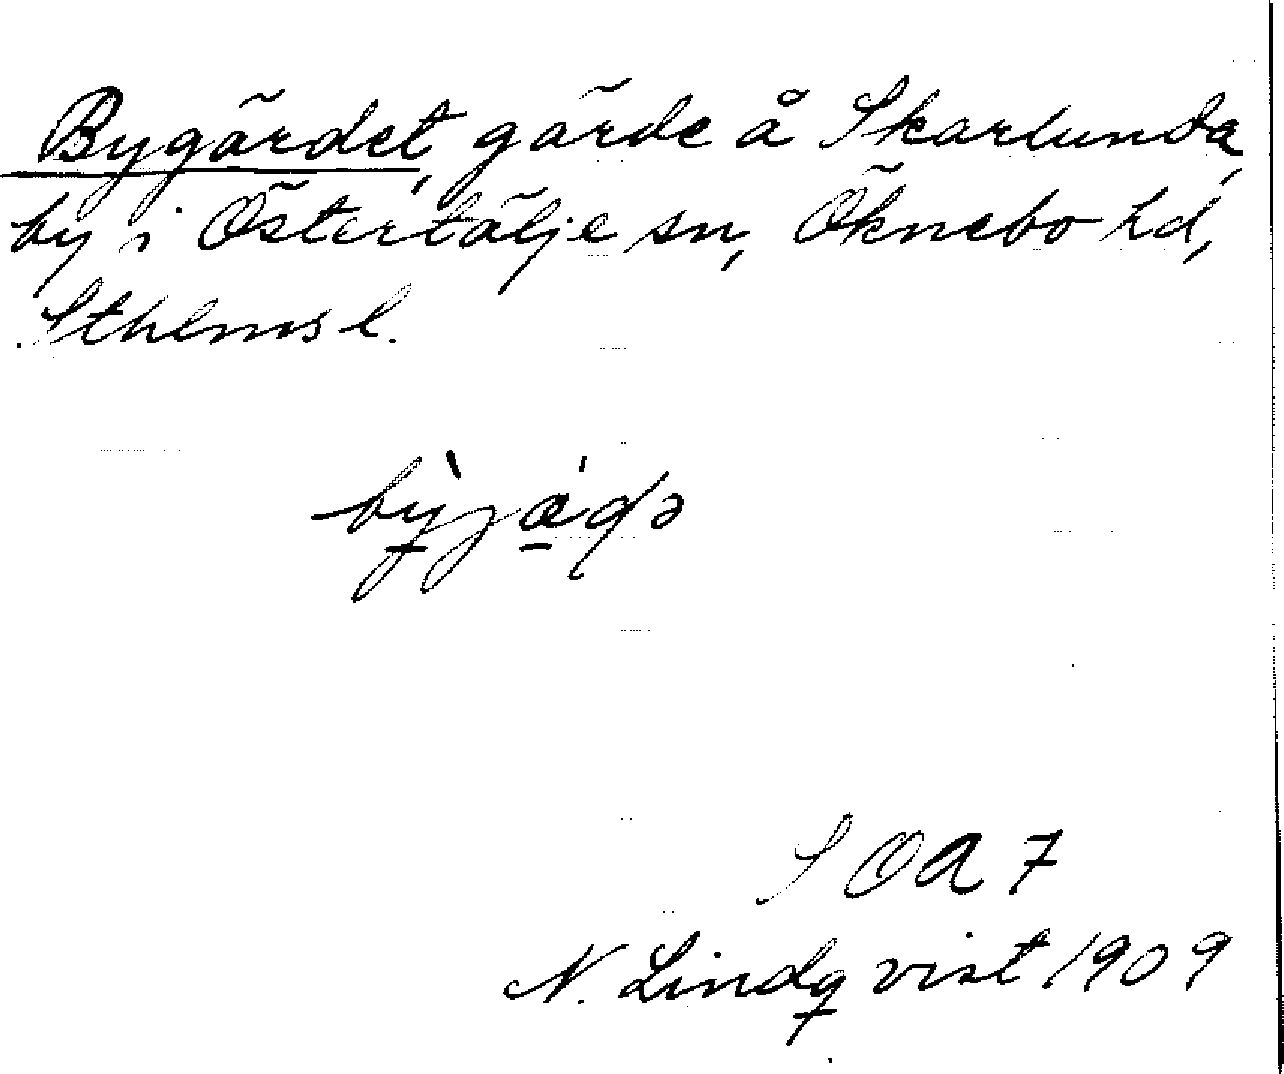 Bygärdet, gärde å Skarlunda
by i Östertälje sn, Öknebo hd,
Sthlms l.
SOA 7
N. Lindqvist 1909